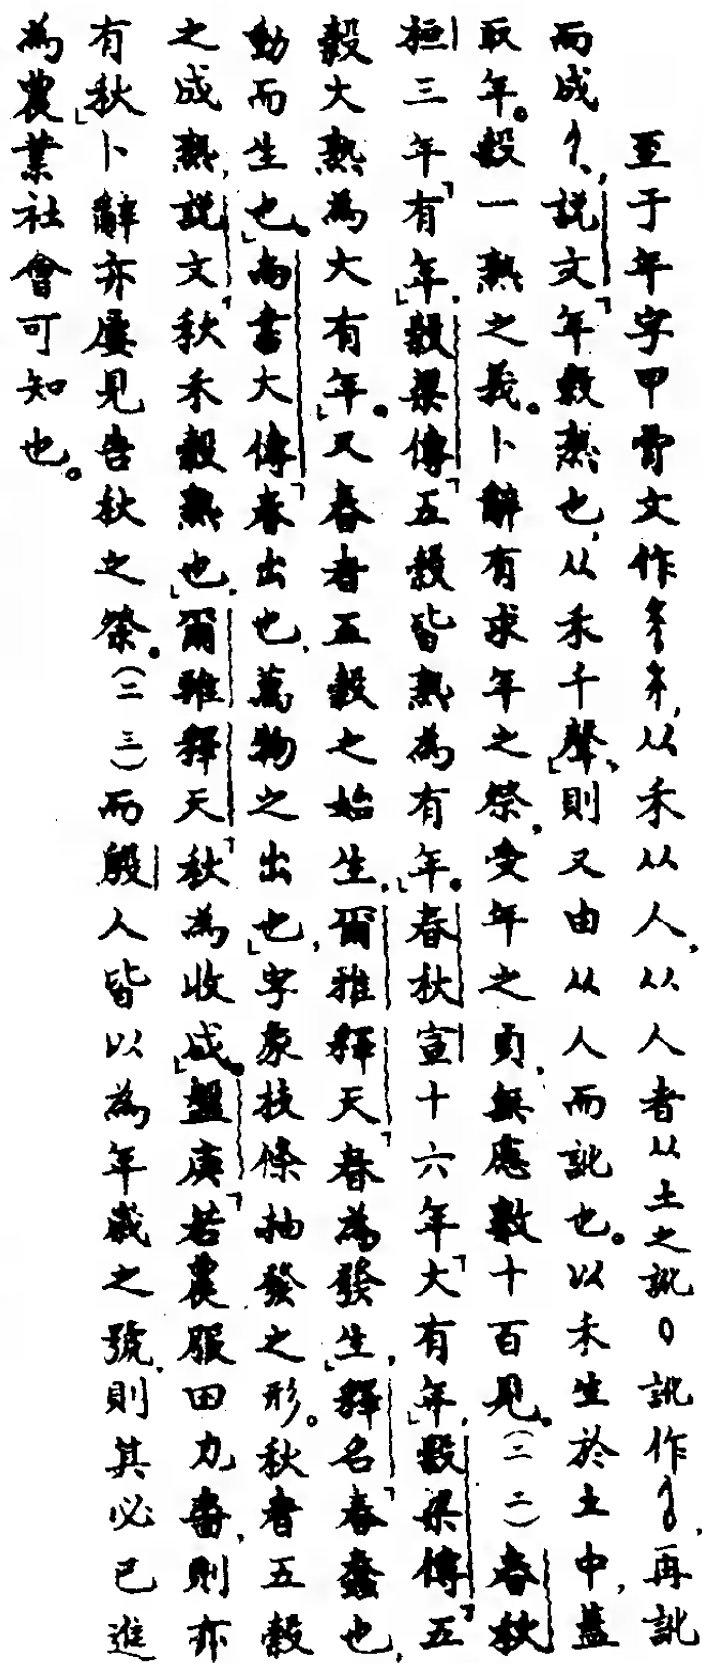 至于年字甲骨文作，从禾从人，从人者从土之訛，訛作，再訛
而成，說文「年穀熟也，从禾千聲」，則又由从人而訛也。以禾生於土中，蓋
取年。穀一熟之義。卜辭有求年之祭，受年之貞，無慮數十百見。（二二）春秋
桓三年「有年」，穀梁傳「五穀皆熟為有年」。春秋宣十六年「大有年」，穀梁傳「五
穀大熟為大有年」。又春者五穀之始生，爾雅釋天「春為發生」，釋名「春蠢也，
動而生也」。尚書大傳「春出也，萬物之出也」，字象枝條抽發之形。秋者五穀
之成熟，說文「秋禾穀熟也」，爾雅釋天「秋為收成」。盤庚「若農服田力穡，則亦
有秋」卜辭亦屢見告秋之祭。（二三）而殷人皆以為年歲之號，則其必已進
為農業社會可知也。